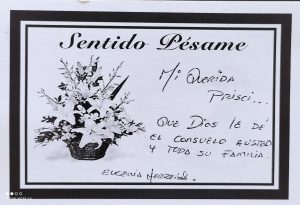 Sentido Pésame
Mi Querida
Prisci...
Que Dios le dé
el consuelo a usted
y toda su familia.
Eugenia